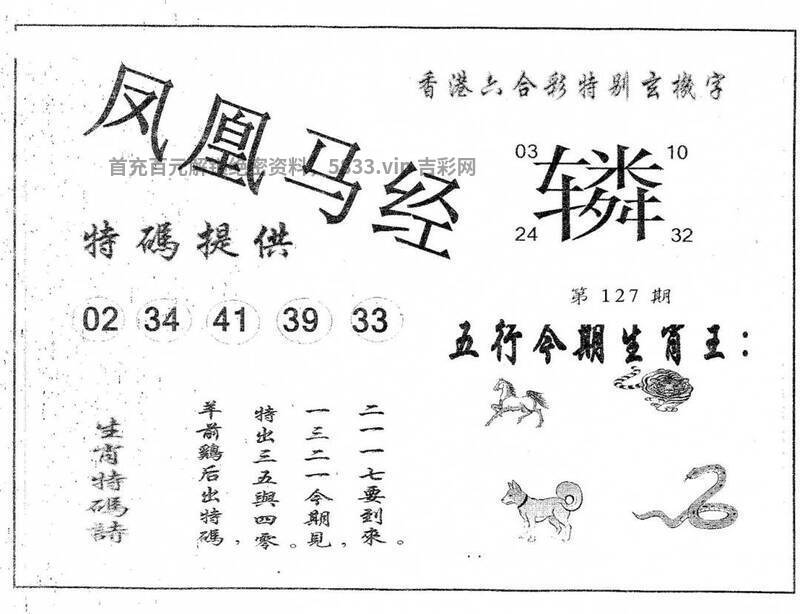 凤凰马经
香港六合彩特别玄機字
首充百元解锁绝密资料，5833.vip 吉彩网
03 10
辚
24 32
特碼提供
第 127 期
02 34 41 39 33
五行今期生肖王：
二一一七要到來。
一三二一今期見，
特出三五與四零。
羊前鷄后出特碼，
生肖特碼詩